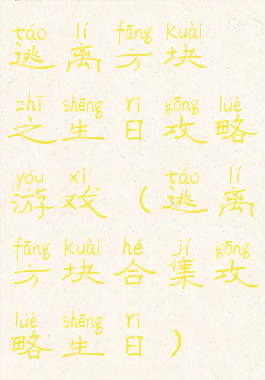 táo lí fāng kuài
逃离方块
zhī shēng rì gōng lüè
之生日攻略
yóu xì táo lí
游戏（逃离
fāng kuài hé jí gōng
方块合集攻
lüè shēng rì
略生日）